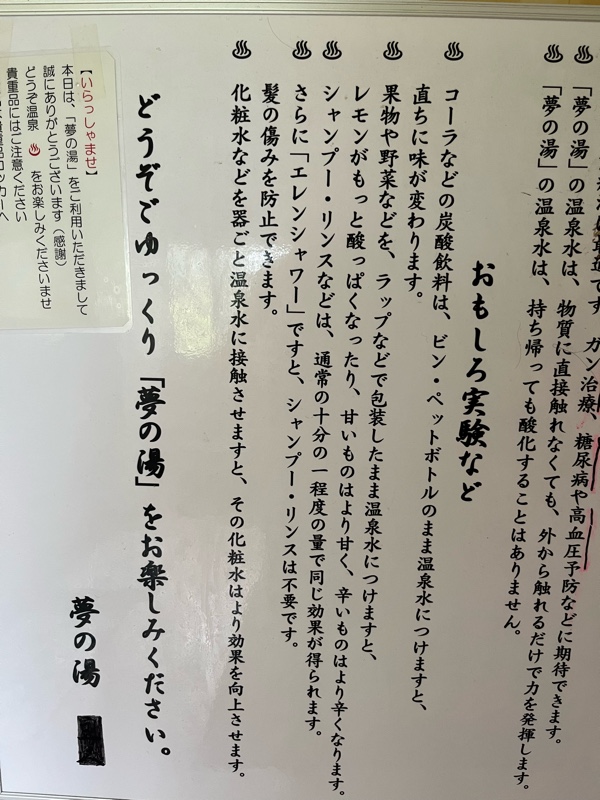 です。ガン治療、糖尿病や高血圧予防などに期待できます。
♨「夢の湯」の温泉水は、物質に直接触れなくても、外から触れるだけで力を発揮します。
♨「夢の湯」の温泉水は、持ち帰っても酸化することはありません。
おもしろ実験など
♨コーラなどの炭酸飲料は、ビン・ペットボトルのまま温泉水につけますと、
直ちに味が変わります。
♨果物や野菜などを、ラップなどで包装したまま温泉水につけますと、
レモンがもっと酸っぱくなったり、甘いものはより甘く、辛いものはより辛くなります。
♨シャンプー・リンスなどは、通常の十分の一程度の量で同じ効果が得られます。
♨さらに「エレンシャワー」ですと、シャンプー・リンスは不要です。
髪の傷みを防止できます。
♨化粧水などを器ごと温泉水に接触させますと、その化粧水はより効果を向上させます。
どうぞごゆっくり「夢の湯」をお楽しみください。
夢の湯
【いらっしゃませ】
本日は、「夢の湯」をご利用いただきまして
誠にありがとうございます（感謝）
どうぞ温泉♨をお楽しみくださいませ
貴重品にはご注意ください
貴重品ロッカーへ